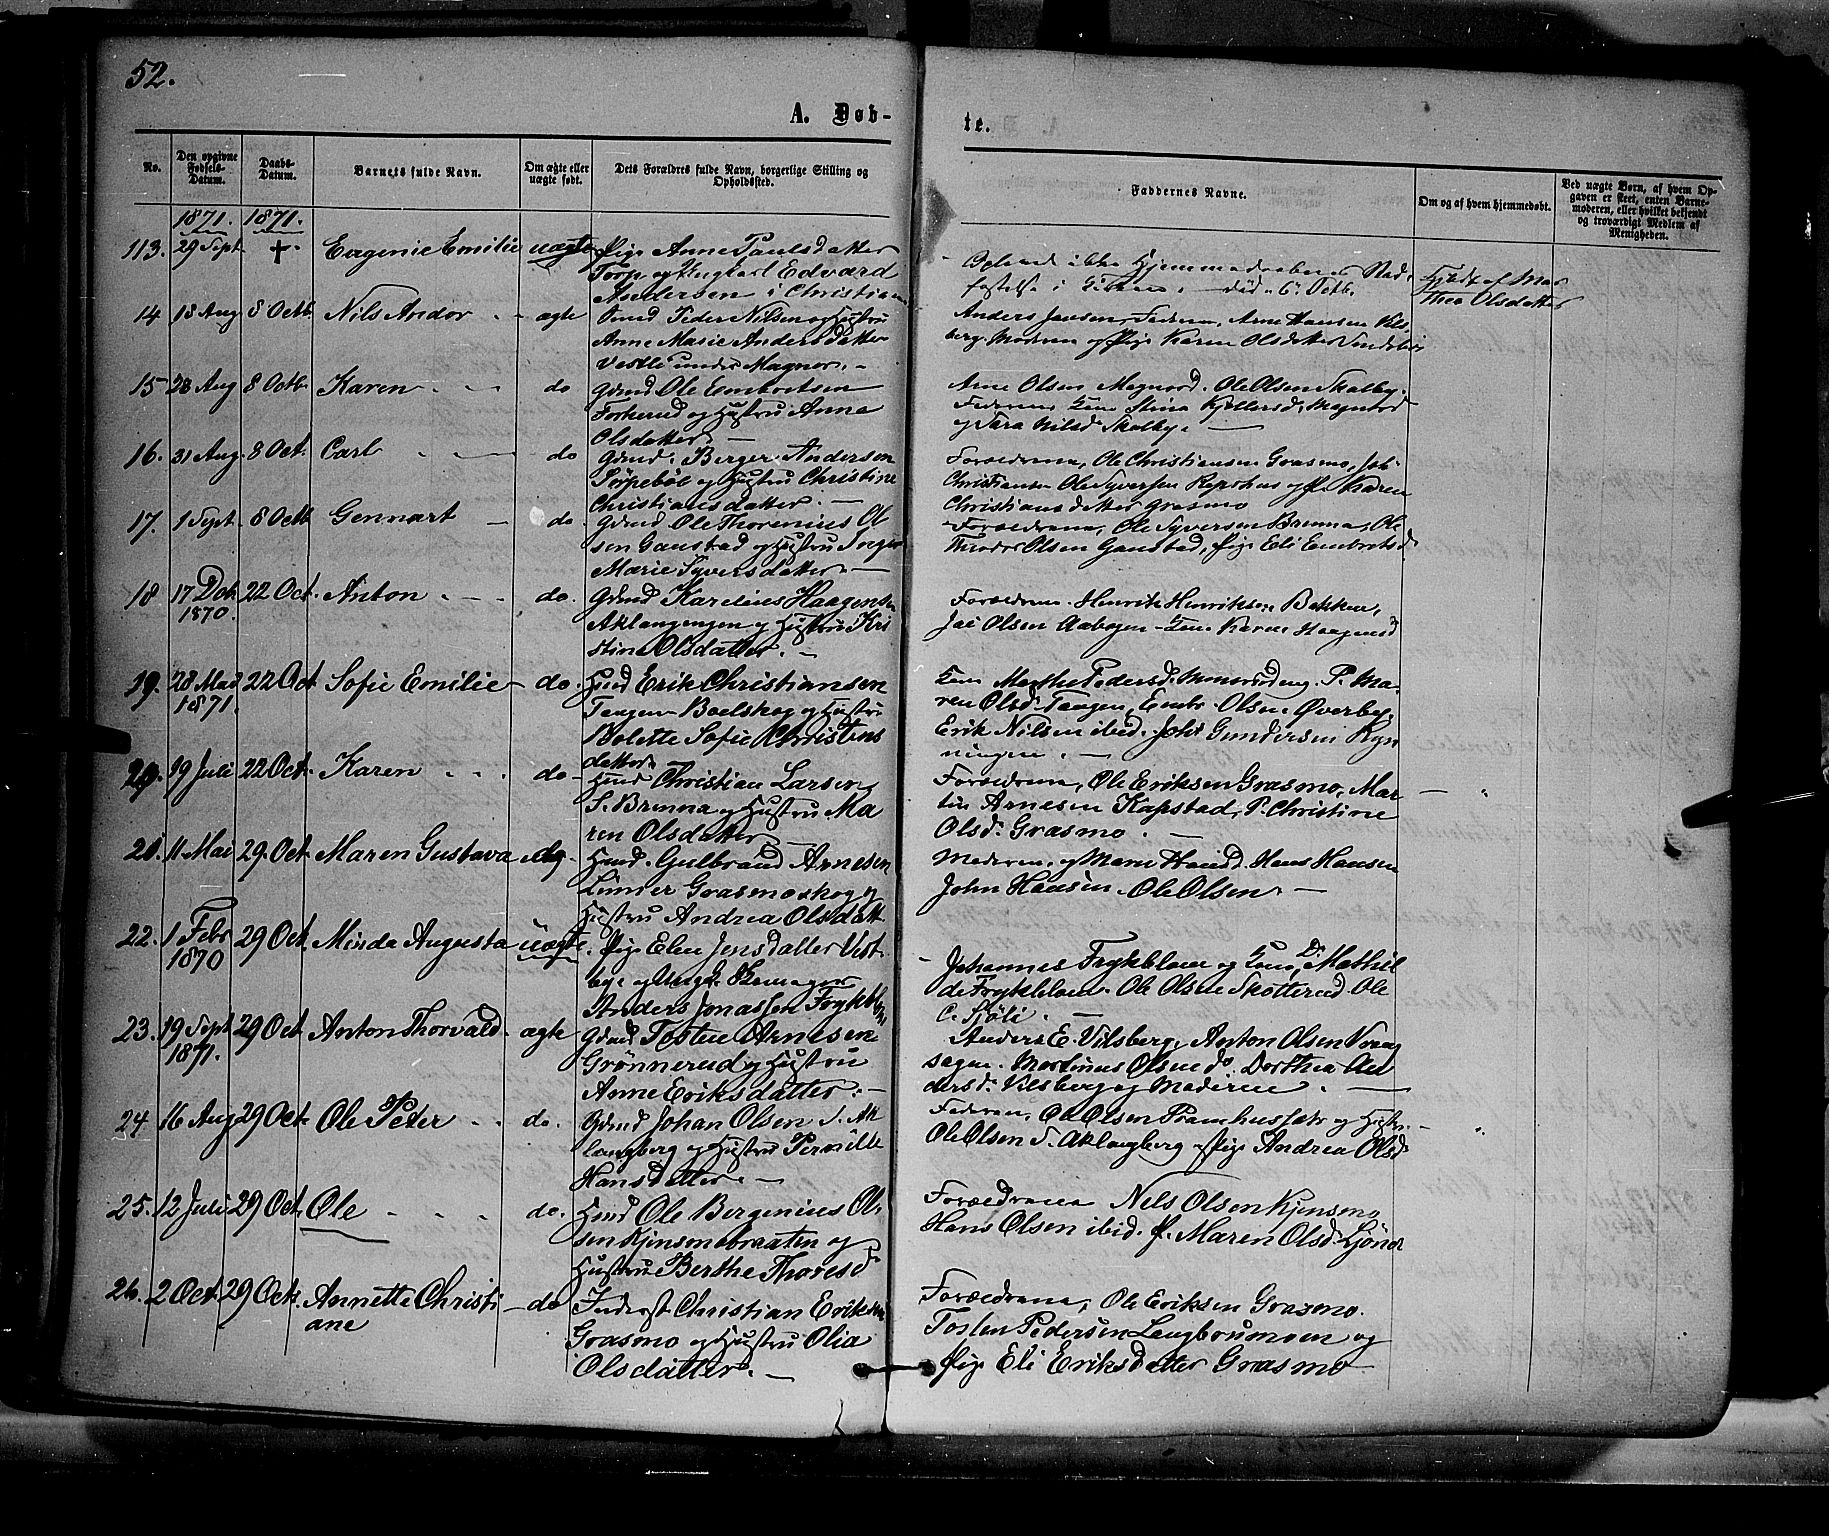 52.
A. Døb-
te.
No.
Den opgivne Fødsels-Datum.
Daabs-Datum.
Barnets fulde Navn.
Om ægte eller uægte født.
Dets Forældres fulde Navn, borgerlige Stilling og Opholdssted.
Faddernes Navne.
Om og af hvem hjemmedøbt.
Ved uægte Børn, af hvem Op-
gaven er skeet, enten Barne-
moderen, eller hvilket bekjendt
og troværdigt Medlem af
Menigheden.
1871. 1871.
113. 29 Sept. +. Eugenie Emilie uægte Pige Anne Paulsdatter
Torp og Ungkarl Edvard
Andersen i Christiania
ikke Hjemmedaaben Stad-
fæstelse i død 6 Octb.
Hjdbt af Mar
Thea Olsdatter
14 18 Aug 8 Octb. Nils Andor ægte Peder Nilsen og Hustru
Anne Marie Andersdatter
Vestli under Magnor.
Anders Jensen, Faderen, Arne Hansen Vils-
berg, Moderen og Pige Karen Olsdatter
15 28 Aug 8 Octb. Karen do Gdmd Ole Embretsen
og Hustru Anna
Olsdatter.
Arne Olsen Magnord. Ole Olsen Skalby.
Faderen Stina Kjellersd. Magnord
og Sara Nilsd Skalby.
16. 31 Aug. 8 Oct. Carl do Gdmd. Berger Andersen
Pørpebøl og Hustru Christine
Christiansdatter.
Forældrene, Ole Christiansen Grasmo, Joh.
Christiansen Ole Syversen og P. Karen
Christiansdatter Grasmo
17. 1 Sept. 8 Octb Gennart do. Gdmd Ole Thorenius Ol
sen Gaustad og Hustru Inger
Marie Syversdatter.
Forældrene, Ole Syversen Brenna, Ole
Theodor Olsen Gaustad, Pige Eli Embretsd.
18 17 Dcb. 1870. 22 Oct. Anton do. Gdmd Karelius Haagensen
Aklangengen og Hustru Kri
stine Olsdatter.
Forældrene Henrik Henriksen Bakken,
Olsen Aabogen Karen Haagensd
19. 28 Mai 1871. 22 Oct Sofie Emilie do. Hmd Erik Christiansen
Tangen Boelskog og Hustru
Bolette Sofie Christens
datter
Kone Marthe Pedersd. P. Ma-
ren Olsd. Tangen, Embr. Olsen Øverby,
Erik Nilsen ibid. Joh Gundersen Ryn
ningen.
20. 19 Juli 22 Oct. Karen do Hmd Christian Larsen
S. Brenna og Hustru Ma
ren Olsdatter
Forældrene, Ole Eriksen Grasmo, Mar-
tin Arnesen Kapstad, P. Christine
Olsd. Grasmo.
21. 11 Mai 29. Oct. Maren Gustava æg. Hmd. Gulbrand Arnesen
Lunder Grasmoskog og
Hustru Andrea Olsdatt
Moderen, og Marie Hansd. Hans Hansen
John Hansen. Ole Olsen.
22. 1 Febr 1870 29 Oct. Minda Augusta uægte. Pige Elen Jensdatter Vest
bye og Ungk.
Anders Jonassen Frykblom
Johannes Frykblom og Kone, Do. Mathil
de Frykblom. Ole Olsen Skotterud. Ole
C. Sjøli.
23. 19 Sept 1871. 29 Oct Anton Thorvald ægte Gdmd Tosten Arnesen
Grönnerud og Hustru
Anne Eriksdatter.
Anders E. Vilsberg, Anton Olsen Vang
sagen. Martinus Olsen do. Dorthea An
dersd. Vilsberg og Moderen.
24 16 Aug 29 Oct. Ole Peter do. Gdmd Johan Olsen S. Ak
langberg og Hustru Pernille
Hansdatter.
Faderen, Ole Olsen og Hustru.
Ole Olsen S. Aklangberg Pige Andrea Olsd
25. 12 Juli 29 Oct. Ole do. Hmd Ole Bergenius Ol
sen Kjensmobraaten og
Hustru Berthe Thoresd
Forældrene Nels Olsen Kjensmo,
Hans Olsen ibid. P. Maren Olsd. Ljöner
26. 2 Oct. 29 Oct. Annette Christi
ane do Inderst Christian Eriksen
Grasmo og Hustru Olia
Olsdatter.
Forældrene, Ole Eriksen Grasmo.
Tosten Pedersen Langbrumoen og
Pige Eli Eriksdatter Grasmo